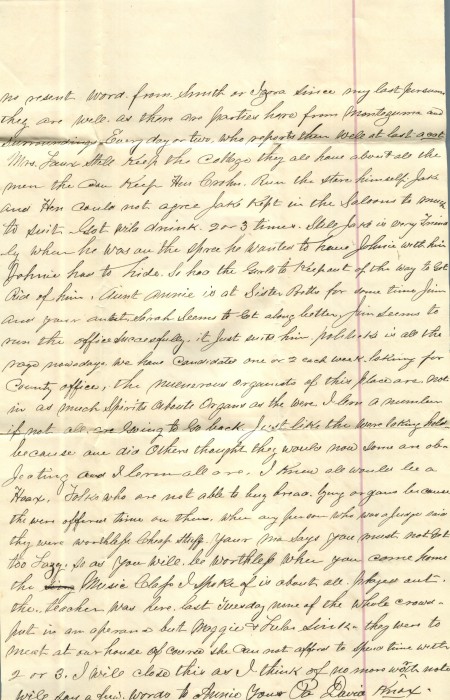 no resent word from Smith or Izora since my last presume
they are well as there are parties here from Montezuma and
surroundings Every day or two, who reports them well at last acct
Mrs. Faux Still Keep the Cottage they all have about all the
men the can Keep Hen Crohn. Run the store himself Jake
and Hen could not agree Jake Kept in the Saloons to much
to suit. Got wild drunk. 2 or 3 times. Still Jake is very friend
ly when he was on the spree he wanted to have Johnie with him
Johnie has to hide. So has the Girls to Keep out of the way to Get
Rid of him. Aunt Annie is at Sister Beths for some time Jim
and your aunt Sarah Seems to Get along better, Jim seems to
run the office successfully. it Just suits him politicks is all the
rage nowadays. We have Candidates one or 2 each week looking for
County office, the numerous organists of this place are not
in as much Spirits about Organs as the were. I learn a number
if not all are Going to Go back Just like the were taking hold
because one did Others thought they would now Some are ob-
jecting and I learn all are. I knew all would be a
Hoax. Folks who are not able to buy bread. buying organs because
the were offered time on them, when any person who was a judge said
they were worthless Cheap Stuff. Your ma says you must not Get
too Lazy. So as you will be worthless when you come home
the Music Class I spoke of is about all played out.
the teacher was here last Tuesday nine of the whole crowd
put in an apearance but Maggie & Lula Sink. they were to
meet at our house of Course she can not afford to spend time with
2 or 3. I will close this as I think of no more worth note
will say a few words to Annie Yours Pa David Knox